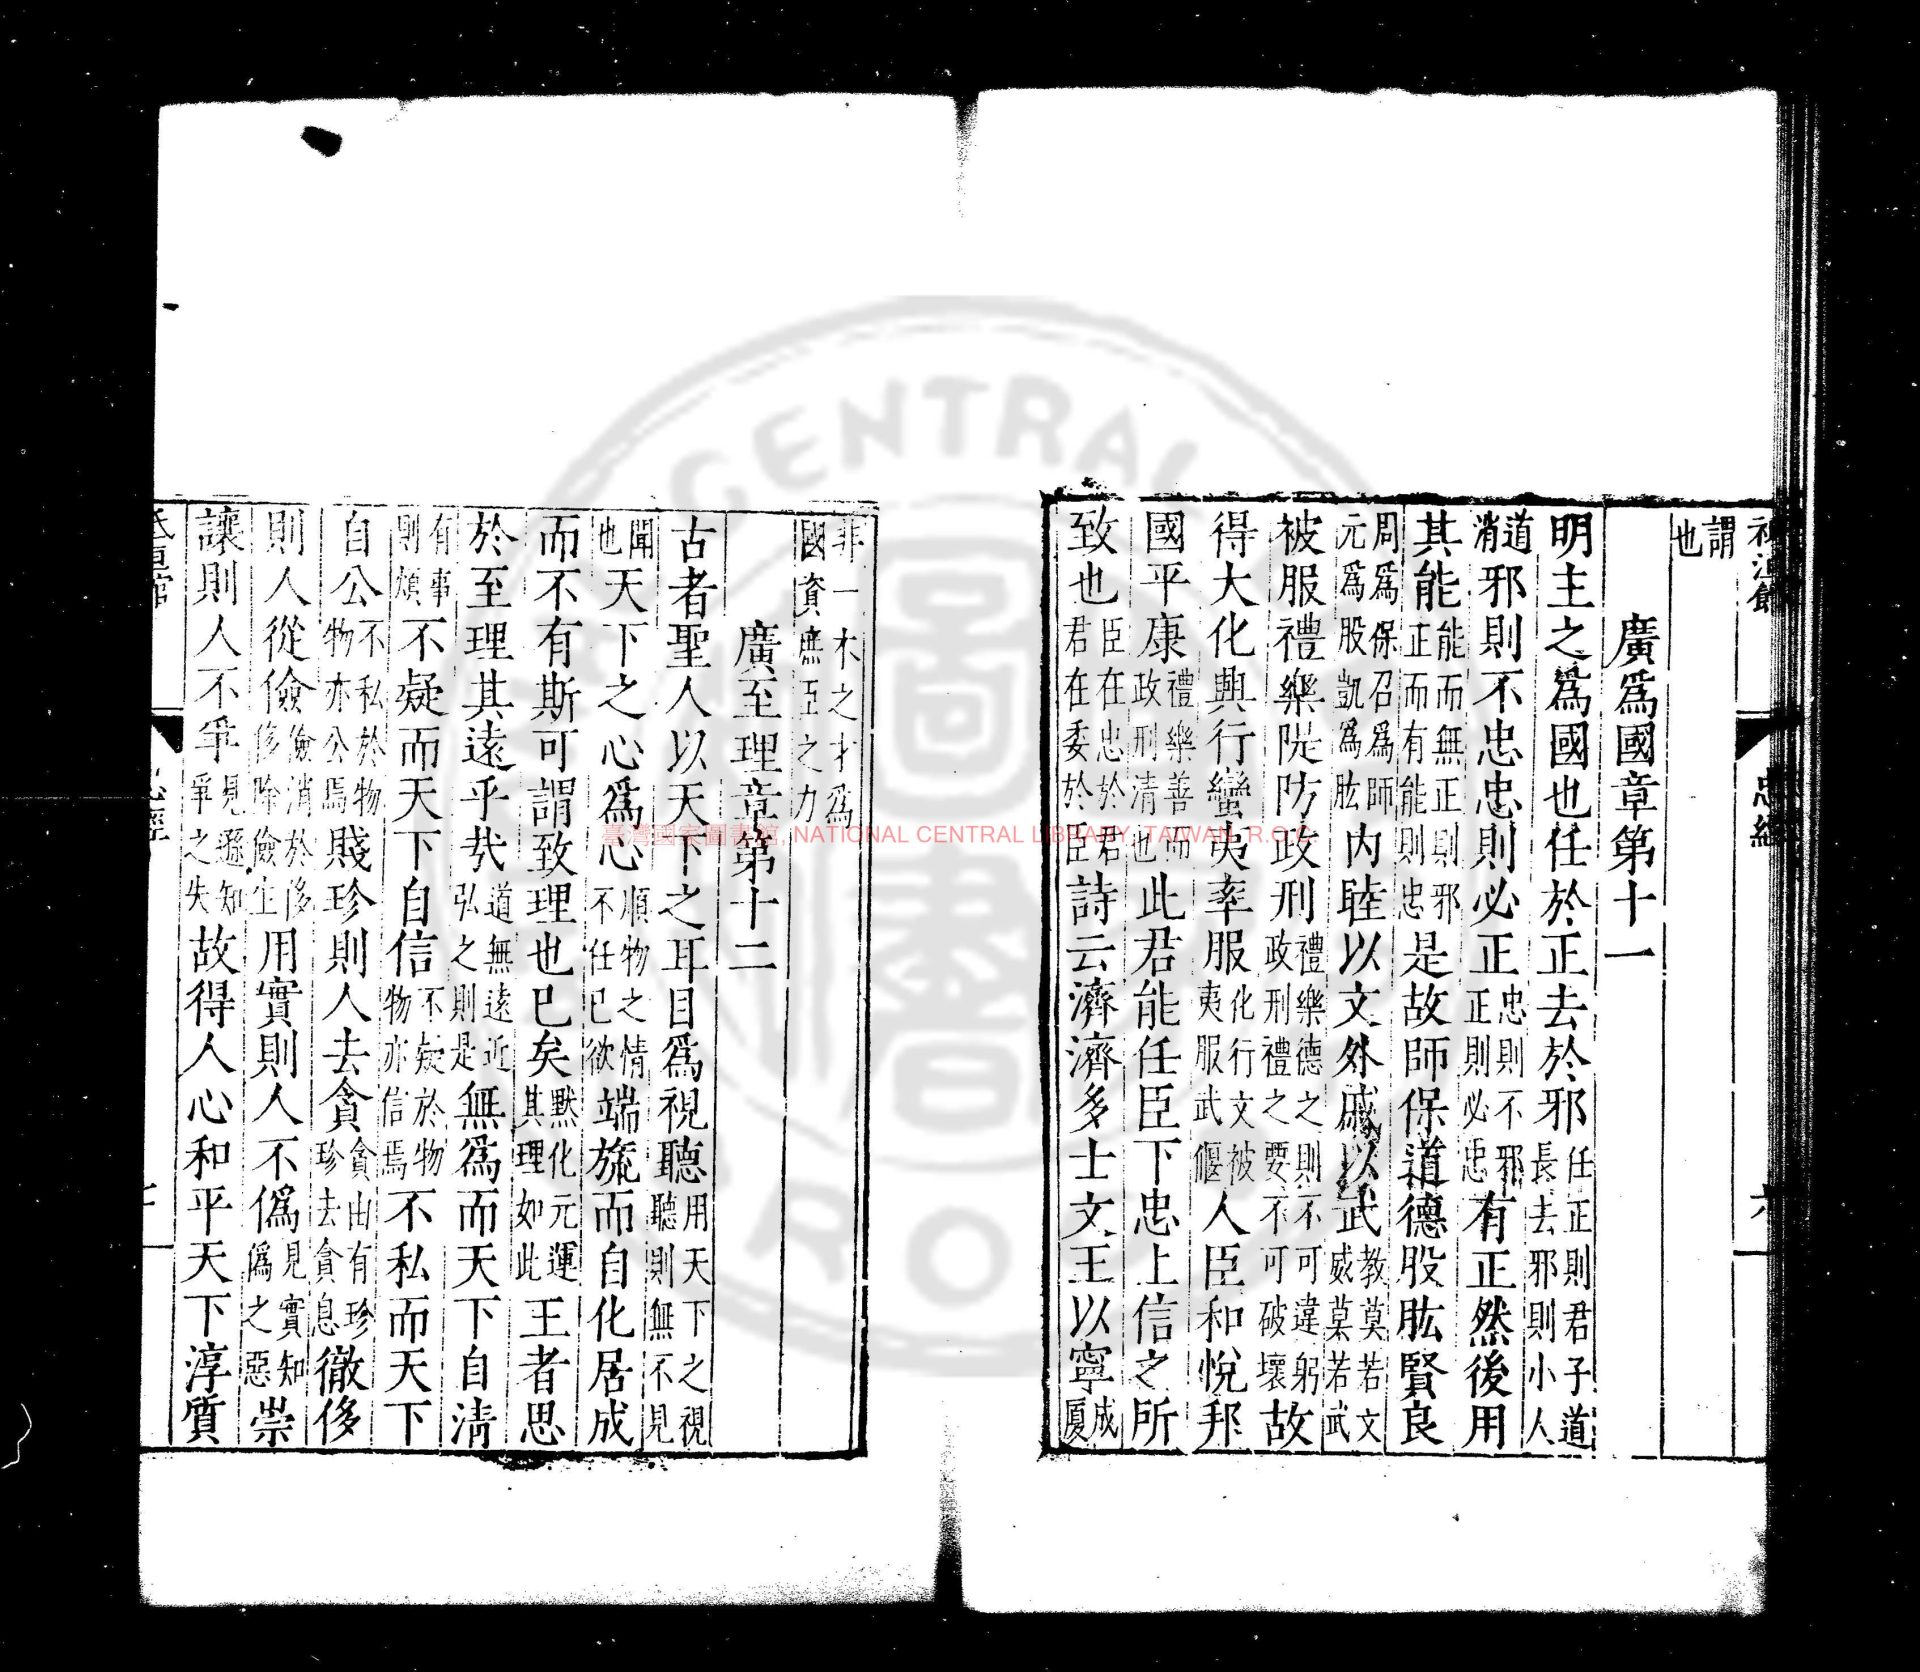 忠經 六
謂也
廣爲國章第十一
明主之爲國也任於正去於邪任正則君子道長去邪則小人
道消邪則不忠忠則必正忠則不邪正則必忠有正然後用
其能能而無正則邪正而有能則忠是故師保道德股肱賢良
周爲保召爲師元爲股凱爲肱内睦以文外戚以武教莫若文威莫若武
被服禮樂陡防政刑禮樂德之則不可違躬政刑禮之要不可破壞故
得大化興行蠻夷率服化行文被夷服武偃人臣和悅邦
國平康禮樂善而政刑清也此君能任臣下忠上信之所
致也臣在忠於君君在委於臣詩云濟濟多士文王以寧成厦
非一木之才爲國資庶臣之力
廣至理章第十二
古者聖人以天下之耳目爲視聽用天下之視聽則無不見
聞也天下之心爲心順物之情不任已欲端旒而自化居成
而不有斯可謂致理也已矣默化元運其理如此王者思
於至理其遠乎哉道無遠近弘之則是無爲而天下自清
有事則煩不疑而天下自信不疑於物物亦信焉不私而天下
自公不私於物物亦公焉賤珍則人去貪貪由有珍珍去貪息徹侈
則人從儉儉消於侈侈除儉生用實則人不僞見實知僞之惡崇
讓則人不爭見遜知爭之失故得人心和平天下淳質
臺灣國家圖書館, NATIONAL CENTRAL LIBRARY, TAIWAN, R.O.C.